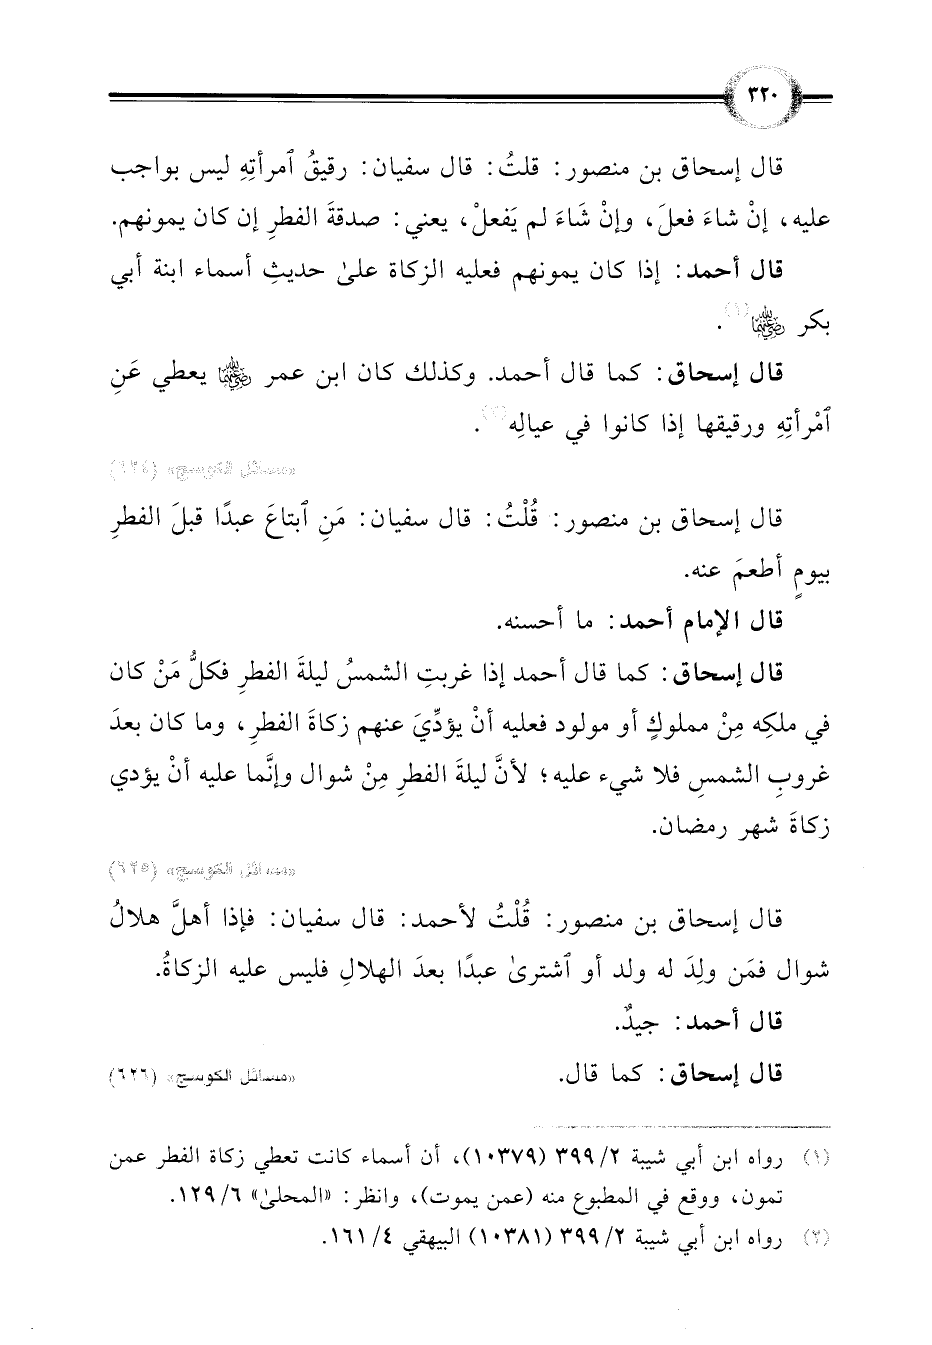 ٣٢٠
قال إسحاق بن منصور: قلتُ: قال سفيان: رقيقُ ٱمرأتِهِ ليس بواجب
عليه، إنْ شاءَ فعلَ، وإنْ شَاءَ لم يَفعلْ، يعني: صدقةَ الفطرِ إن كان يمونهم.
قال أحمد: إذا كان يمونهم فعليه الزكاة علىٰ حديثِ أسماء ابنة أبي
بكر رضي الله عنهما(١).
قال إسحاق: كما قال أحمد. وكذلك كان ابن عمر رضي الله عنهما يعطي عَنِ
ٱمْرأتِهِ ورقيقها إذا كانوا في عيالِه(٢).
«مسائل الكوسج» (٦٢٤)
قال إسحاق بن منصور: قُلْتُ: قال سفيان: مَنِ ٱبتاعَ عبدًا قبلَ الفطرِ
بيومٍ أطعمَ عنه.
قال الإمام أحمد: ما أحسنه.
قال إسحاق: كما قال أحمد إذا غربتِ الشمسُ ليلةَ الفطرِ فكلُّ مَنْ كان
في ملكِه مِنْ مملوكٍ أو مولود فعليه أنْ يؤدِّيَ عنهم زكاةَ الفطرِ، وما كان بعدَ
غروبِ الشمسِ فلا شيء عليه؛ لأنَّ ليلةَ الفطرِ مِنْ شوال وإنَّما عليه أنْ يؤدي
زكاةَ شهر رمضان.
«مسائل الكوسج» (٦٢٥)
قال إسحاق بن منصور: قُلْتُ لأحمد: قال سفيان: فإذا أهلَّ هلالُ
شوال فمَن ولِدَ له ولد أو ٱشترىٰ عبدًا بعدَ الهلالِ فليس عليه الزكاةُ.
قال أحمد: جيدٌ.
قال إسحاق: كما قال. «مسائل الكوسج» (٦٢٦)
(١) رواه ابن أبي شيبة ٢/ ٣٩٩ (١٠٣٧٩)، أن أسماء كانت تعطي زكاة الفطر عمن
تمون، ووقع في المطبوع منه (عمن يموت)، وانظر: «المحلىٰ» ٦/ ١٢٩.
(٢) رواه ابن أبي شيبة ٢/ ٣٩٩ (١٠٣٨١) البيهقي ٤/ ١٦١.